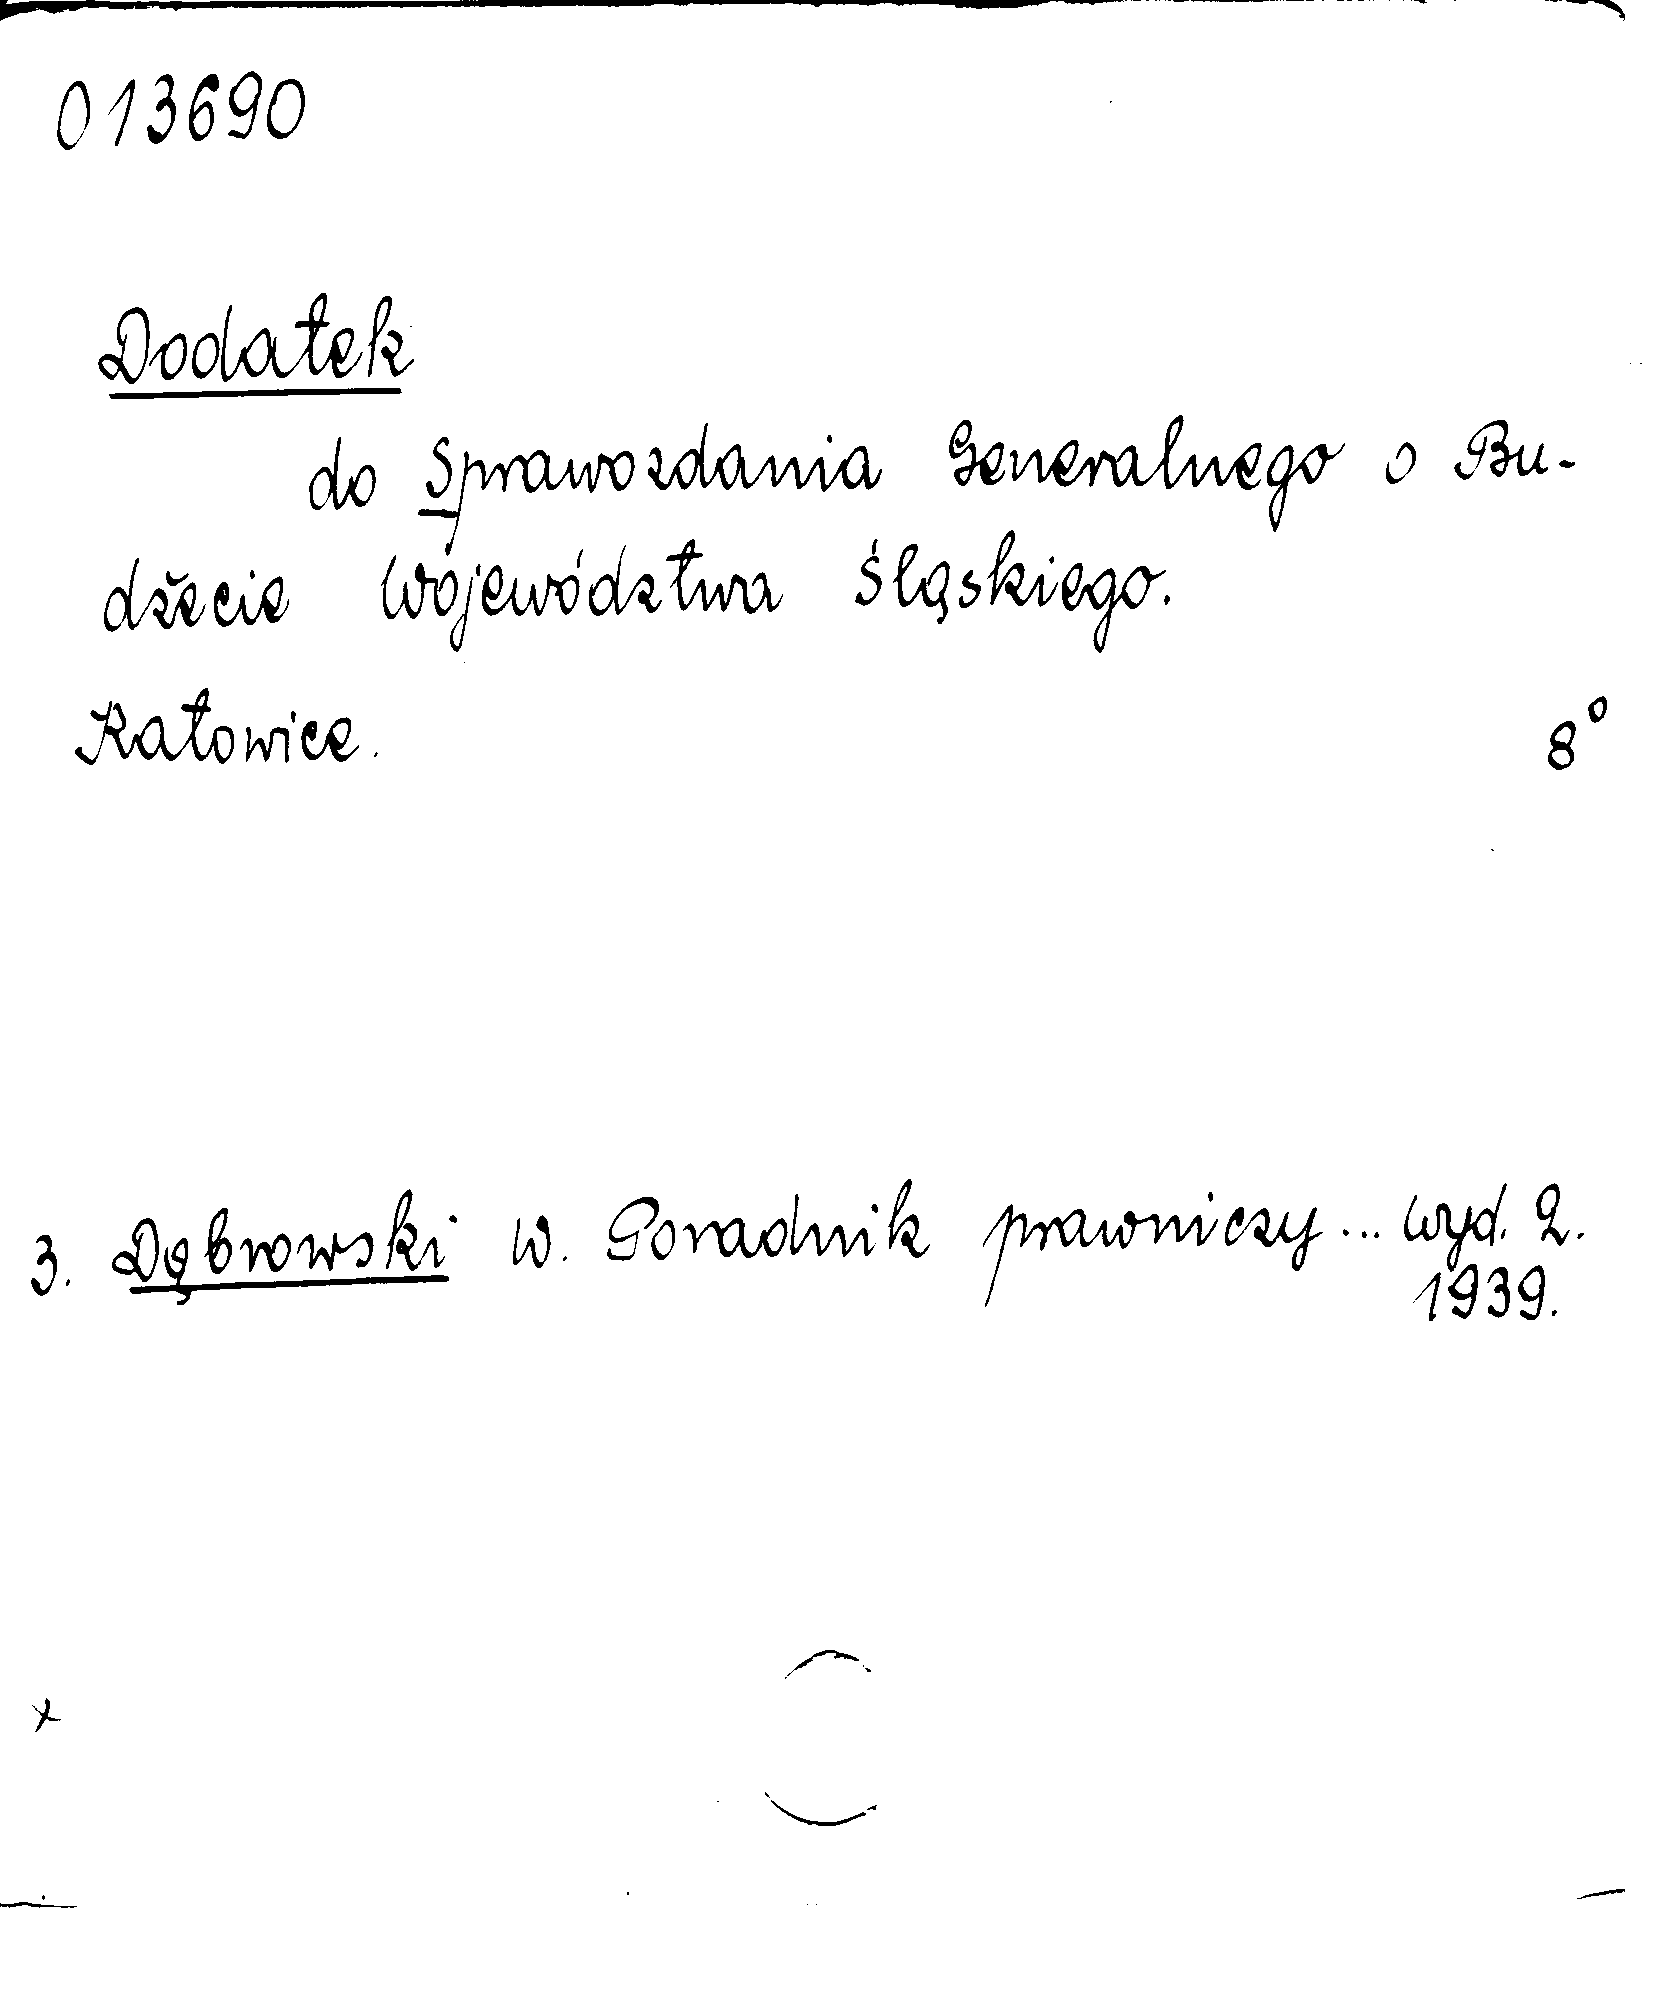 013690
Dodatek
do Sprawozdania Generalnego o Bu-
dżecie Województwa Śląskiego.
Katowice. 8°
3. Dąbrowski W. Poradnik prawniczy... wyd. 2.
1939.
x